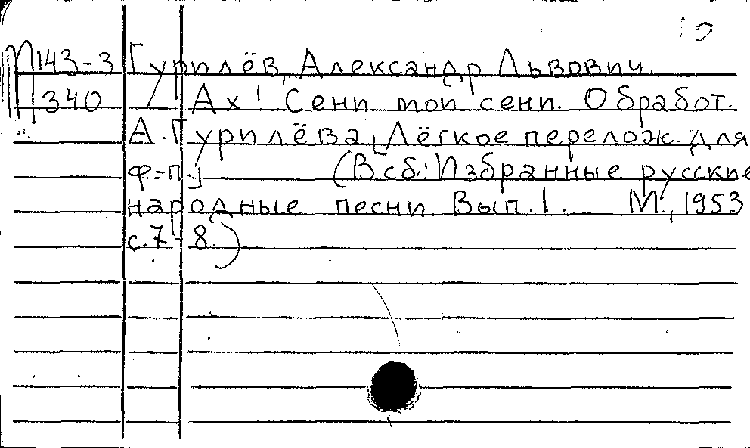 П143-3 Гурилёв, Александр Львович.
340 Ах! Сени мои сени. Обработ.
А. Гурилёва, [Лёгкое перелож. для
ф-п.] (В сб: Избранные русские
народные песни. Вып. 1. М., 1953
с. 7-8.)